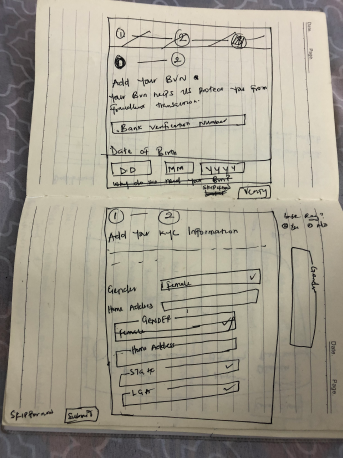 1 2
1 2
Add Your BVN &
Your Bvn helps Us protect you from
fraudlent transaction.
Bank Verification Number
Date of Birth
DD MM YYYY
Why do we need your Bvn?
Verify
1 2
Add Your KYC Information
Gender female
Home Address
GENDER
female
Home Address
STATE
LGA
Skip for now Submit
Gender
Date
Page
Date
Page